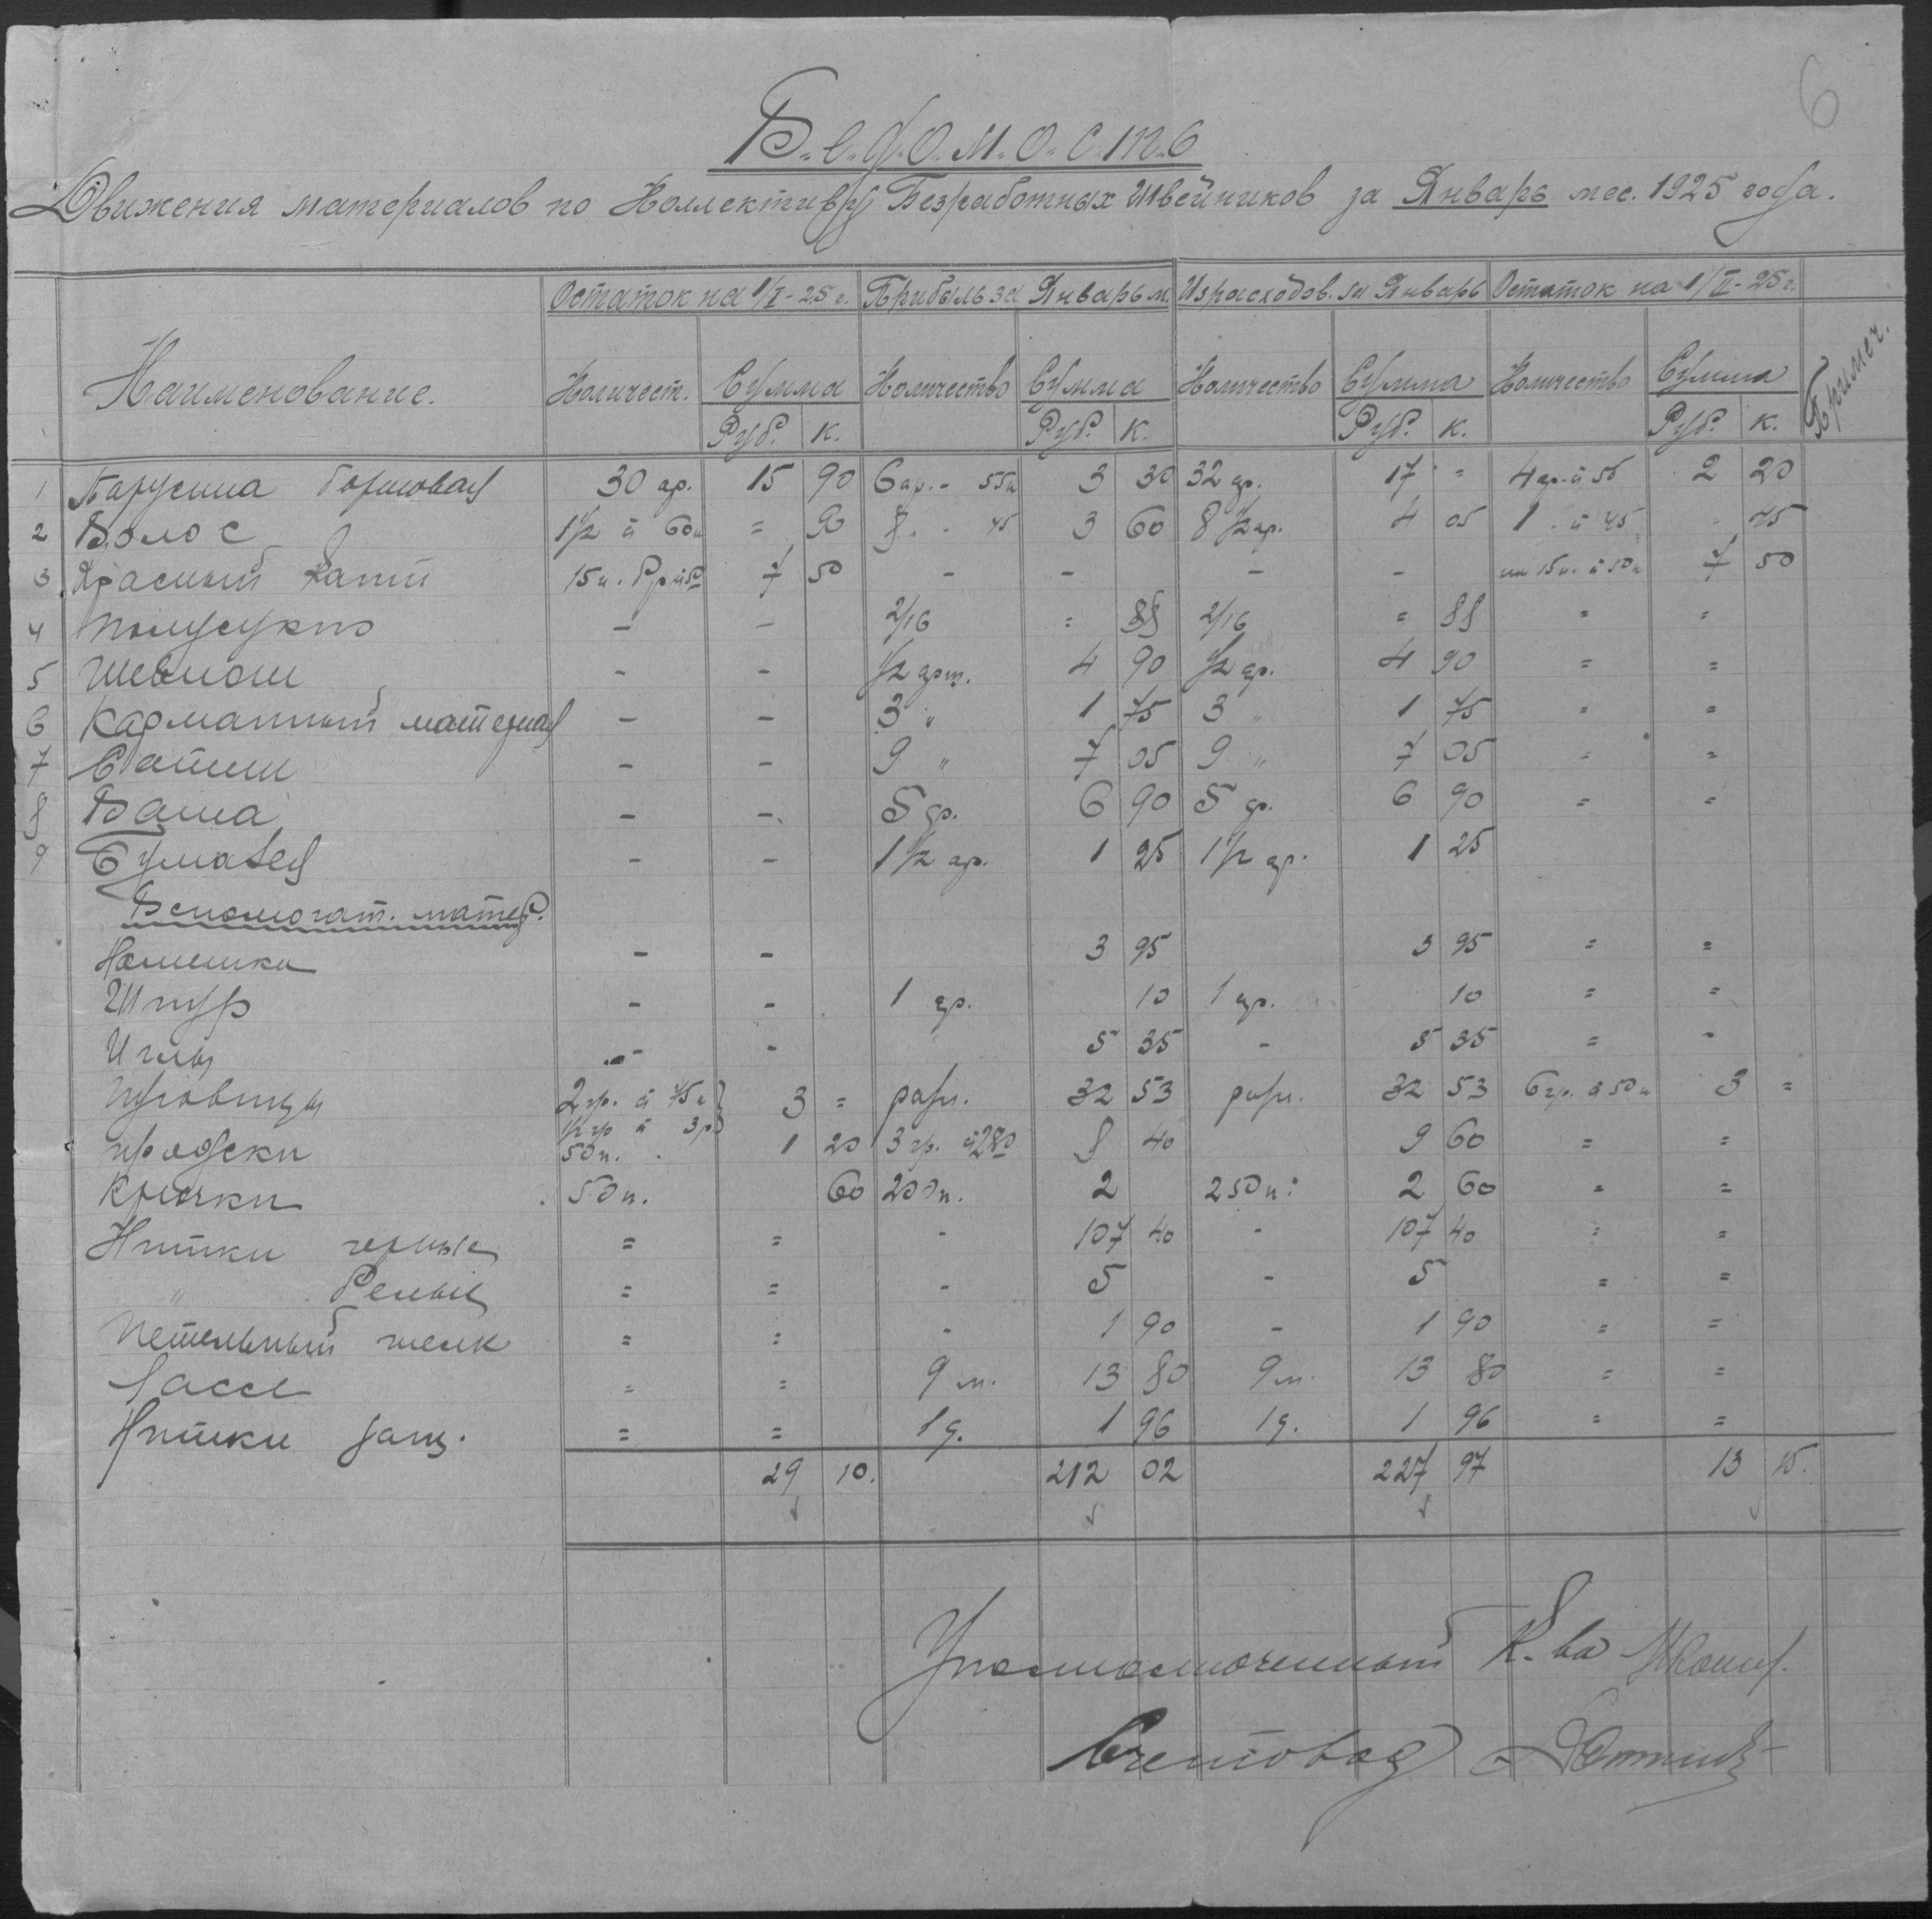 6
В.е.д.о.м.о.с.т.ь
Движения материалов по Коллективу Безработных Швейников за Январь мес. 1925 года.
Наименование. Остаток на 1/I-25 г. Прибыль за Январь м. Израсходов. за Январь Остаток на 1/II-25 г. Примеч.
Количест. Сумма Количество Сумма Количество Сумма Количество Сумма
Руб. К. Руб. К. Руб. К. Руб. К.
1 Парусина бортовая 30 ар. 15 90 6 ар. - 55к 3 30 32 ар. 17 = 4 ар. à 55 2 20
2 Волос 1½ à 60к = 90 8 " - 45 3 60 8½ ар. 4 05 1 " à 45 " 45
3 Красный кант 15 к. 7 50 - - - - 15 к. à 50к 7 50
4 Полусукно - - 2/16 = 88 2/16 = 88 = =
5 Шевиот - - ½ арш. 4 90 ½ ар. 4 90 = =
6 Карманный материал - - 3 " 1 75 3 " 1 75 = =
7 Сатин - - 9 " 7 05 9 " 7 05 = =
8 Вата - - 5 ар. 6 90 5 ар. 6 90 = =
9 Бумазея - - 1½ ар. 1 25 1½ ар. 1 25
Вспомогат. матер.
- - 3 95 3 95 = =
Шнур - - 1 ар. 10 1 ар. 10 = =
Иглы - - 5 35 - 5 35 = -
Пуговицы 2 гр. à 75к 3 = разн. 32 53 разн. 32 53 6 гр. à 50к 3 =
½ гр à 3р
пряжки 50 п. 1 20 3 гр. à 2 80 8 40 9 60 = =
Крючки 50 п. 60 200 п. 2 250 п. 2 60 = =
Нитки черные = = - 107 40 - 107 40 = =
" белые = = - 5 - 5 = =
Петельный шелк = = - 1 90 - 1 90 = =
= = 9 м. 13 80 9 м. 13 80 = =
Нитки = = 1 д. 1 96 1 д. 1 96 = =
29 10. 212 02 227 97 13 15.
Уполномоченный К-ва
Счетовод